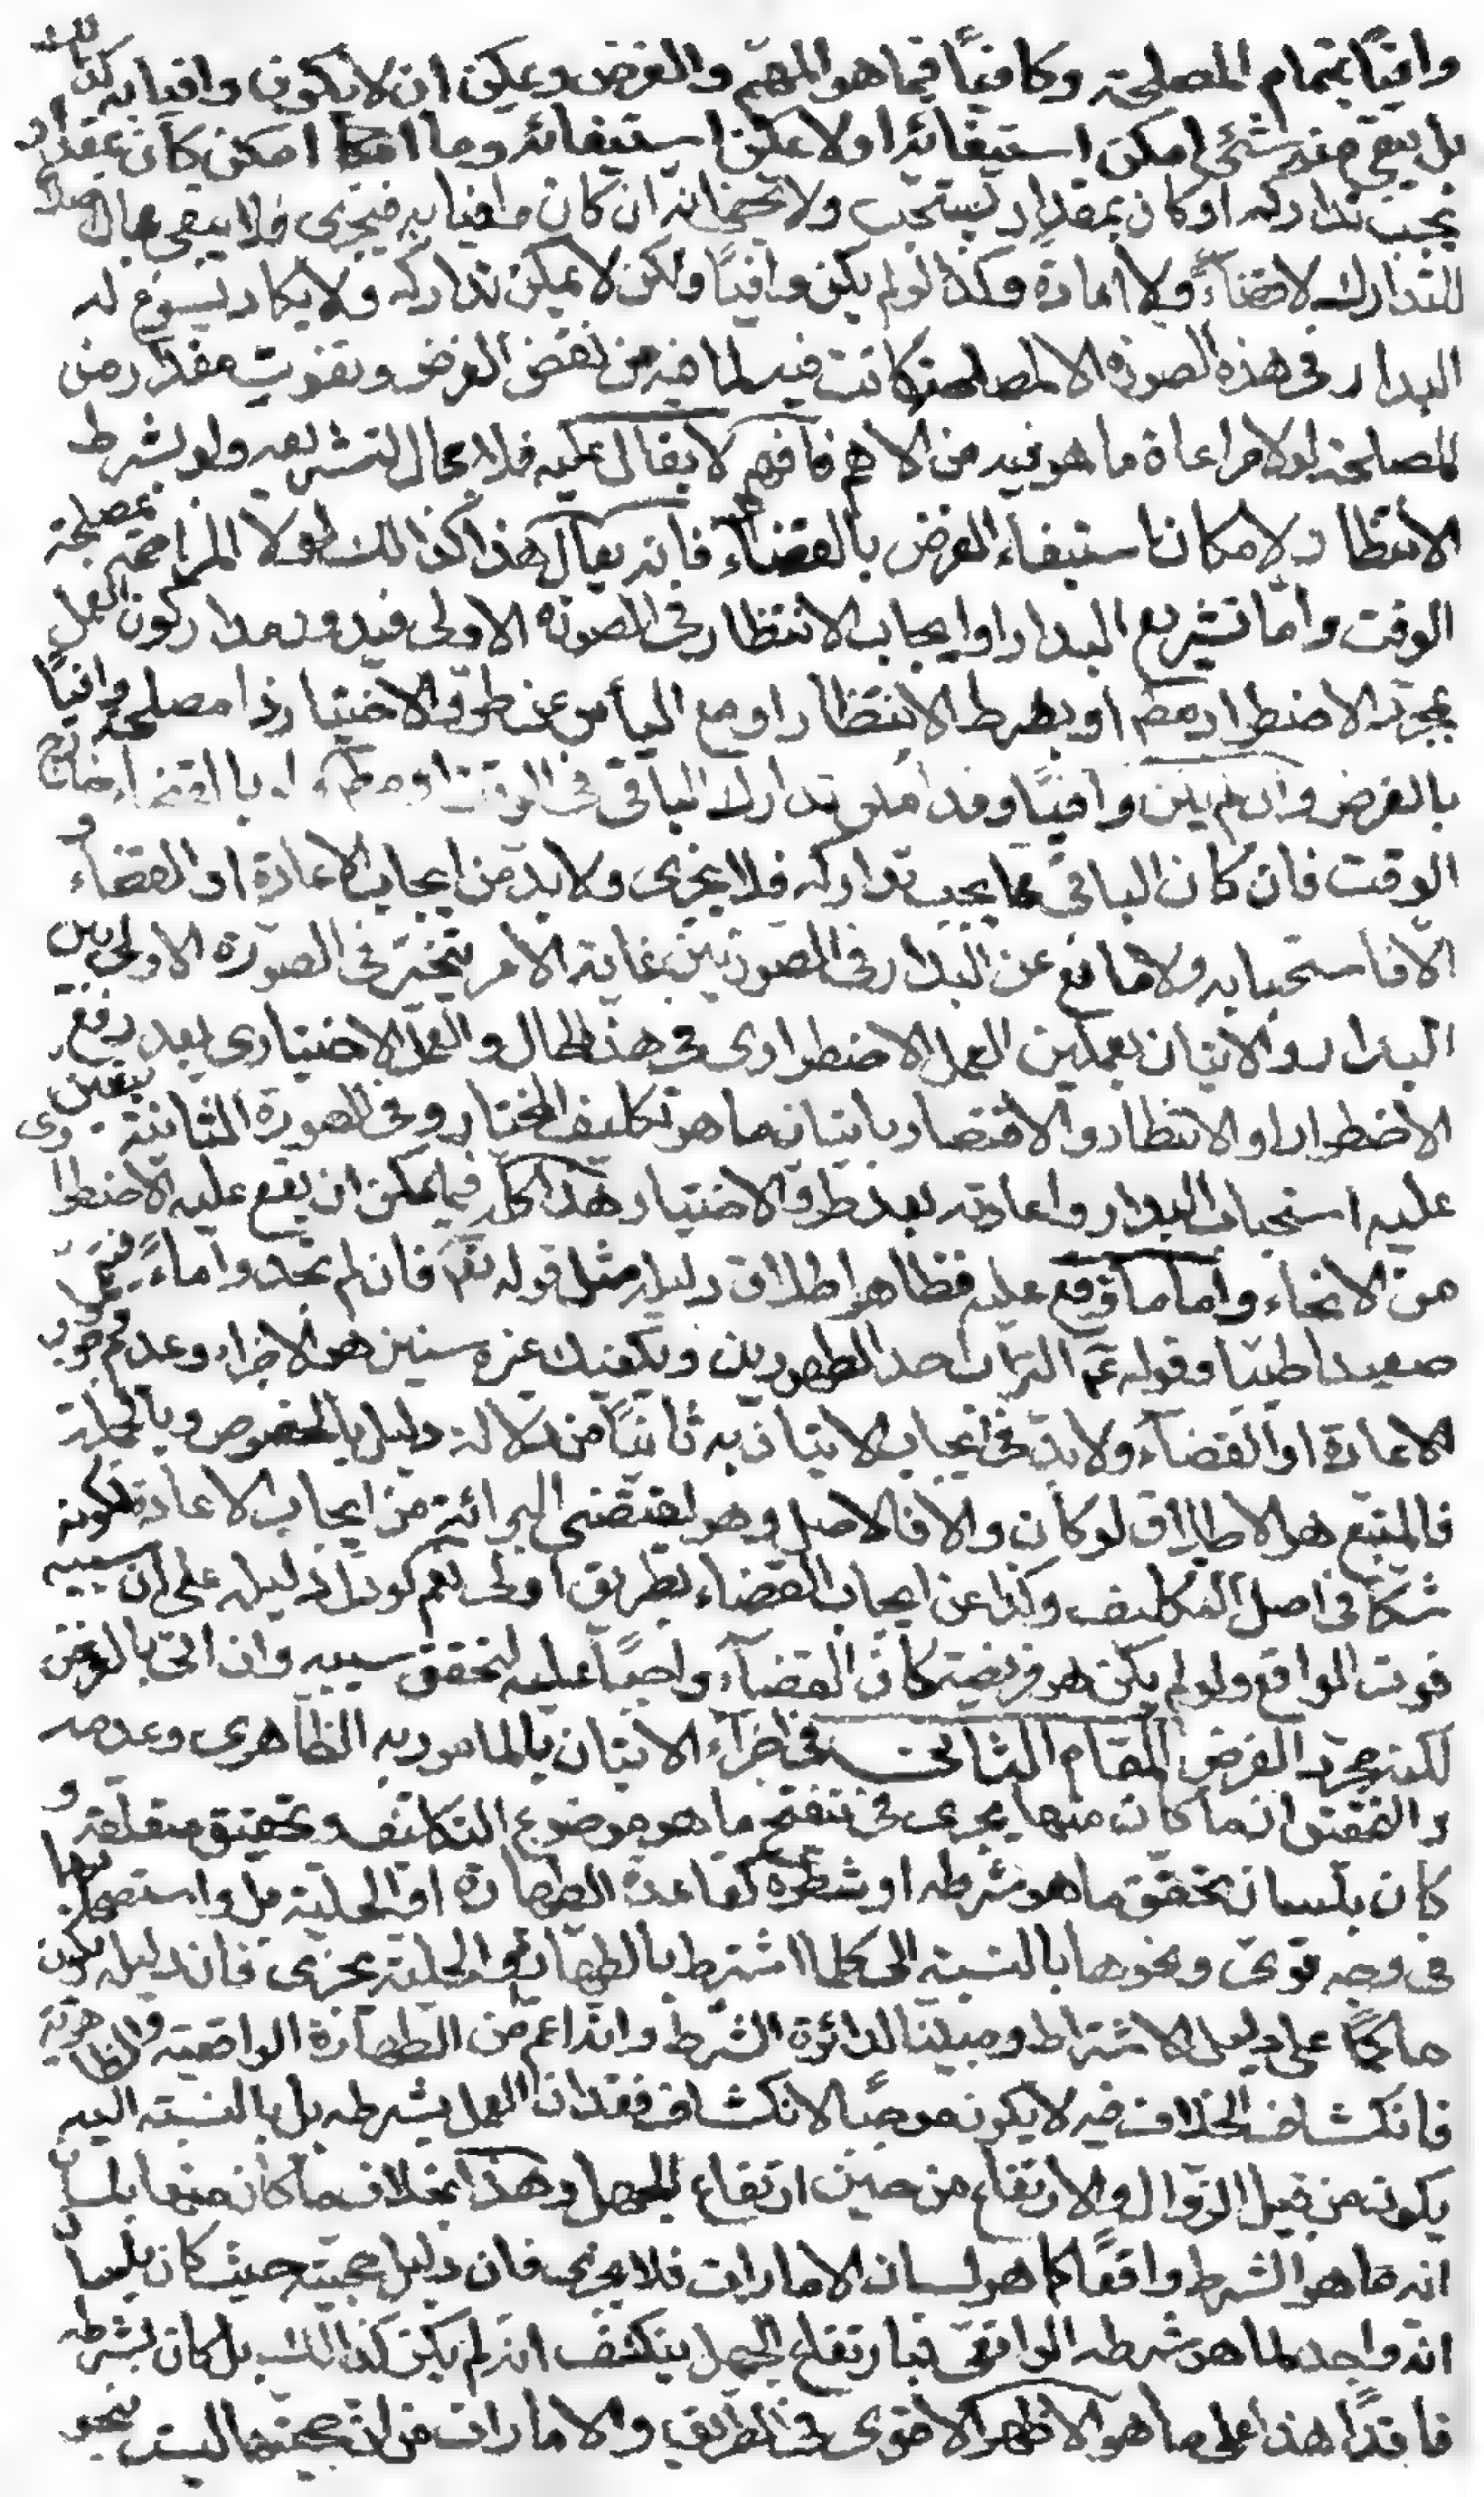 وافيًا بتمام المصلحة وكافيًا فيما هو المهم والغرض ويمكن ان لا يكون وافيا به كذلك
بل يبقى منه شئ امكن استيفائه او لا يمكن استيفائه وما امكن كان بمقدار
يجب تداركه او كان بمقدار يستحب ولا يخفى انه ان كان وافيا به فيجزى فلا يبقى مجال اصلا
للتدارك لا قضاءً ولا اعادة وكذا لو لم يكن وافيًا ولكن لا يمكن تداركه ولا يكاد يسوغ له
البدار فى هذه الصورة الا لمصلحة كانت فيه لما فيه من نقض الغرض وتفويت مقدار من
المصلحة لولا مراعاة ما هو فيه من الاهم فافهم لا يقال عليه فلا مجال لتشريعه ولو بشرط
الانتظار لامكان استيفاء الغرض بالقضاء فانه يقال هذا كذالك لولا المزاحمة بمصلحة
الوقت وامّا تشريع البدار او ايجاب الانتظار فى الصورة الاولى فيدور مدار كون العمل
بمجرد الاضطرار مطم او بشرط الانتظار او مع اليأس عن طرو الاختيار ذا مصلحة وافيًا
بالغرض وان لم يكن وافيًا وقد امكن تدارك الباقى فى الوقت او مطم ولو بالقضاء خارج
الوقت فان كان الباقى مما يجب تداركه فلا يجزى ولا بد من ايجاب الاعادة او القضاء و
الا فاستحبابه ولا مانع عن البدار فى الصورتين غاية الامر يتخير فى الصورة الاولى بين
البدار والاتيان بعملين العمل الاضطرارى فى هذا الحال والعمل الاختيارى بعد رفع
الاضطرار او الانتظار والاقتصار باتيان ما هو تكليف المختار وفى الصورة الثانية يتعين
عليه استحباب البدار واعادته بعد طرو الاختيار هذا كله فيما يمكن ان يقع عليه الاضطرارى
من الانحاء واما ما وقع عليه فظاهر اطلاق دليله مثل قوله تعم فان لم تجدوا ماءً فتيمموا
صعيدا طيبا وقوله عم التراب احد الطهورين ويكفيك عشر سنين هو الاجزاء وعدم وجوب
الاعادة او القضاء ولا بد فى ايجاب الاتيان به ثانيًا من دلالة دليل بالخصوص وبالجملة
فالمتبع هو الاطلاق لو كان والا فالاصل وهو يقتضى البرائة من ايجاب الاعادة لكونه
شكا فى اصل التكليف وكذا عن ايجاب القضاء بطريق اولى نعم لو دل دليله على ان سببه
فوت الواقع ولو لم يكن هو فريضة كان القضاء واجبًا عليه لتحقق سببه وان اتى بالغرض
لكنه مجرد الفرض المقام الثانى فى اجزاء الاتيان بالمامور به الظاهرى وعدمه
والتحقيق ان ما كان منها يجرى فى تنقيح ما هو موضوع التكليف وتحقيق متعلقه و
كان بلسان تحقق ما هو شرطه او شطره كقاعدة الطهارة او الحلية بل واستصحابهما
فى وجه قوى ونحوها بالنسبة الى كلما اشترط بالطهارة او الحلية يجزى فان دليله يكون
حاكمًا على دليل الاشتراط ومبينا لدائرة الشرط وانه اعم من الطهارة الواقعية والظاهرية
فانكشاف الخلاف فيه لا يكون موجبًا لانكشاف فقدان العمل لشرطه بل بالنسبة اليه
يكون من قبيل الزوال والارتفاع من حين ارتفاع الجهل وهذا بخلاف ما كان منها بلسان
انه ما هو الشرط واقعًا كما هو لسان الامارات فلا يجزى فان دليل حجيته حيث كان بلسان
انه واجد لما هو شرطه الواقعى فبارتفاع الجهل ينكشف انه لم يكن كذالك بل كان لشرطه
فاقدًا هذا على ما هو الاظهر الاقوى فى الطريق والامارات من ان حجيتها ليست بنحو